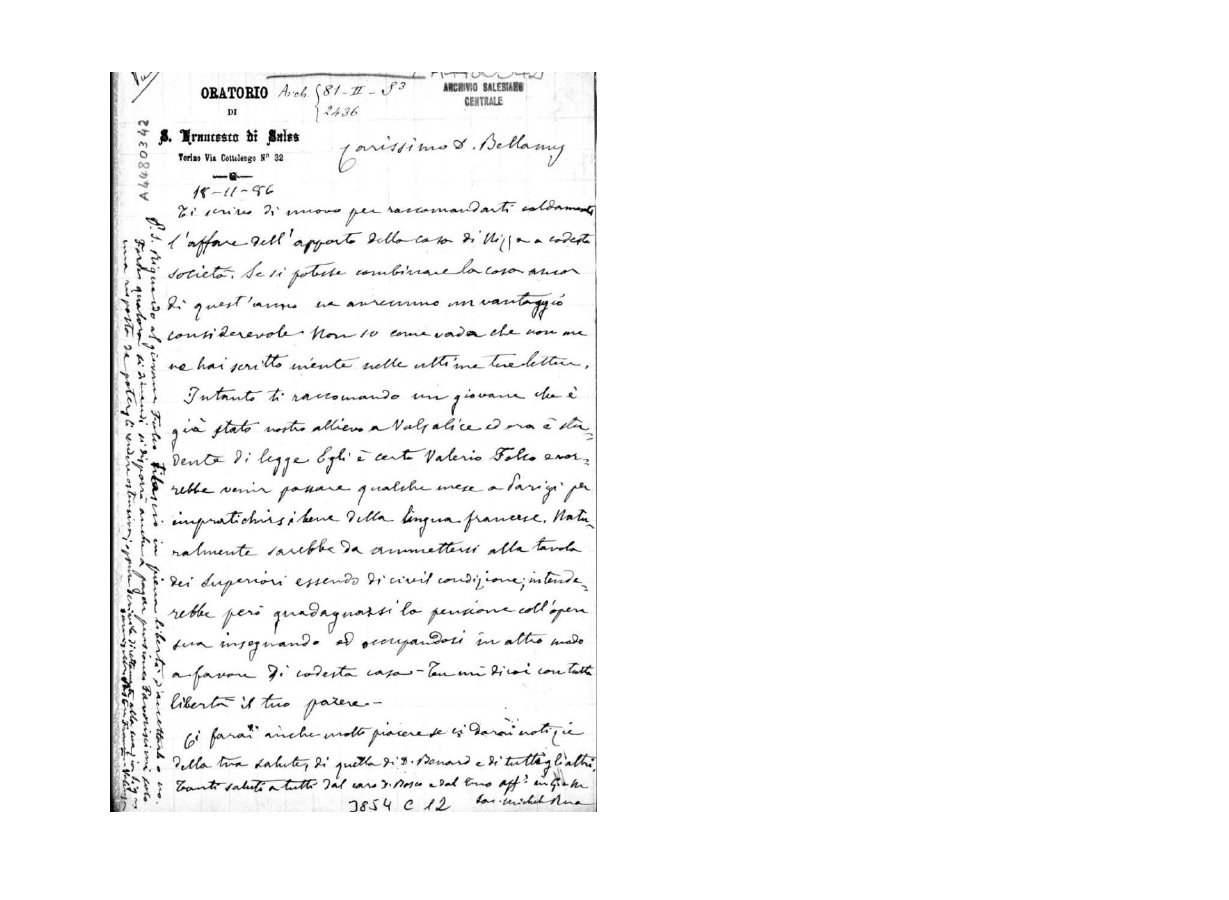 ORATORIO
DI
S. Francesco di Sales
Torino Via Cottolengo N° 32
Arch. 81-II-S3
2436
ARCHIVIO SALESIANO
CENTRALE
A4480342
Carissimo D. Bellamy
18-11-86
Ti scrivo di nuovo per raccomandarti caldamente
l'affare dell'apporto della casa di Nizza a codesta
società. Se si potesse combinare la cosa ancor
di quest'anno ne avremmo un vantaggio
considerevole. Non so come vada che non me
ne hai scritto niente nelle ultime tue lettere.
Intanto ti raccomando un giovane che è
già stato nostro allievo a Valsalice ed ora è stu=
dente di legge Egli è certo Valerio Folco e vor=
rebbe venir passare qualche mese a Parigi per
impratichirsi bene della lingua francese. Natu=
ralmente sarebbe da ammettersi alla tavola
dei Superiori essendo di civil condizione; intende=
rebbe però guadagnarsi la pensione coll'opera
sua insegnando od occupandosi in altro modo
a favore di codesta casa - Tu mi dirai con tutta
libertà il tuo parere -
Ci farai anche molto piacere se ci darai notizie
della tua salute, di quella di D. Benard e di tutti gli altri.
Tanti saluti a tutti dal caro D. Bosco e dal tuo aff.° in G. e M.
Sac. Michel Rua
3854 C 12
P.S. Riguardo al giovane Folco ti lascio in piena libertà d'accettarlo o no.
Forse qualora si domandi si disporrà anche a pagar pensione. Favoriscimi solo
una risposta da potergli rendere